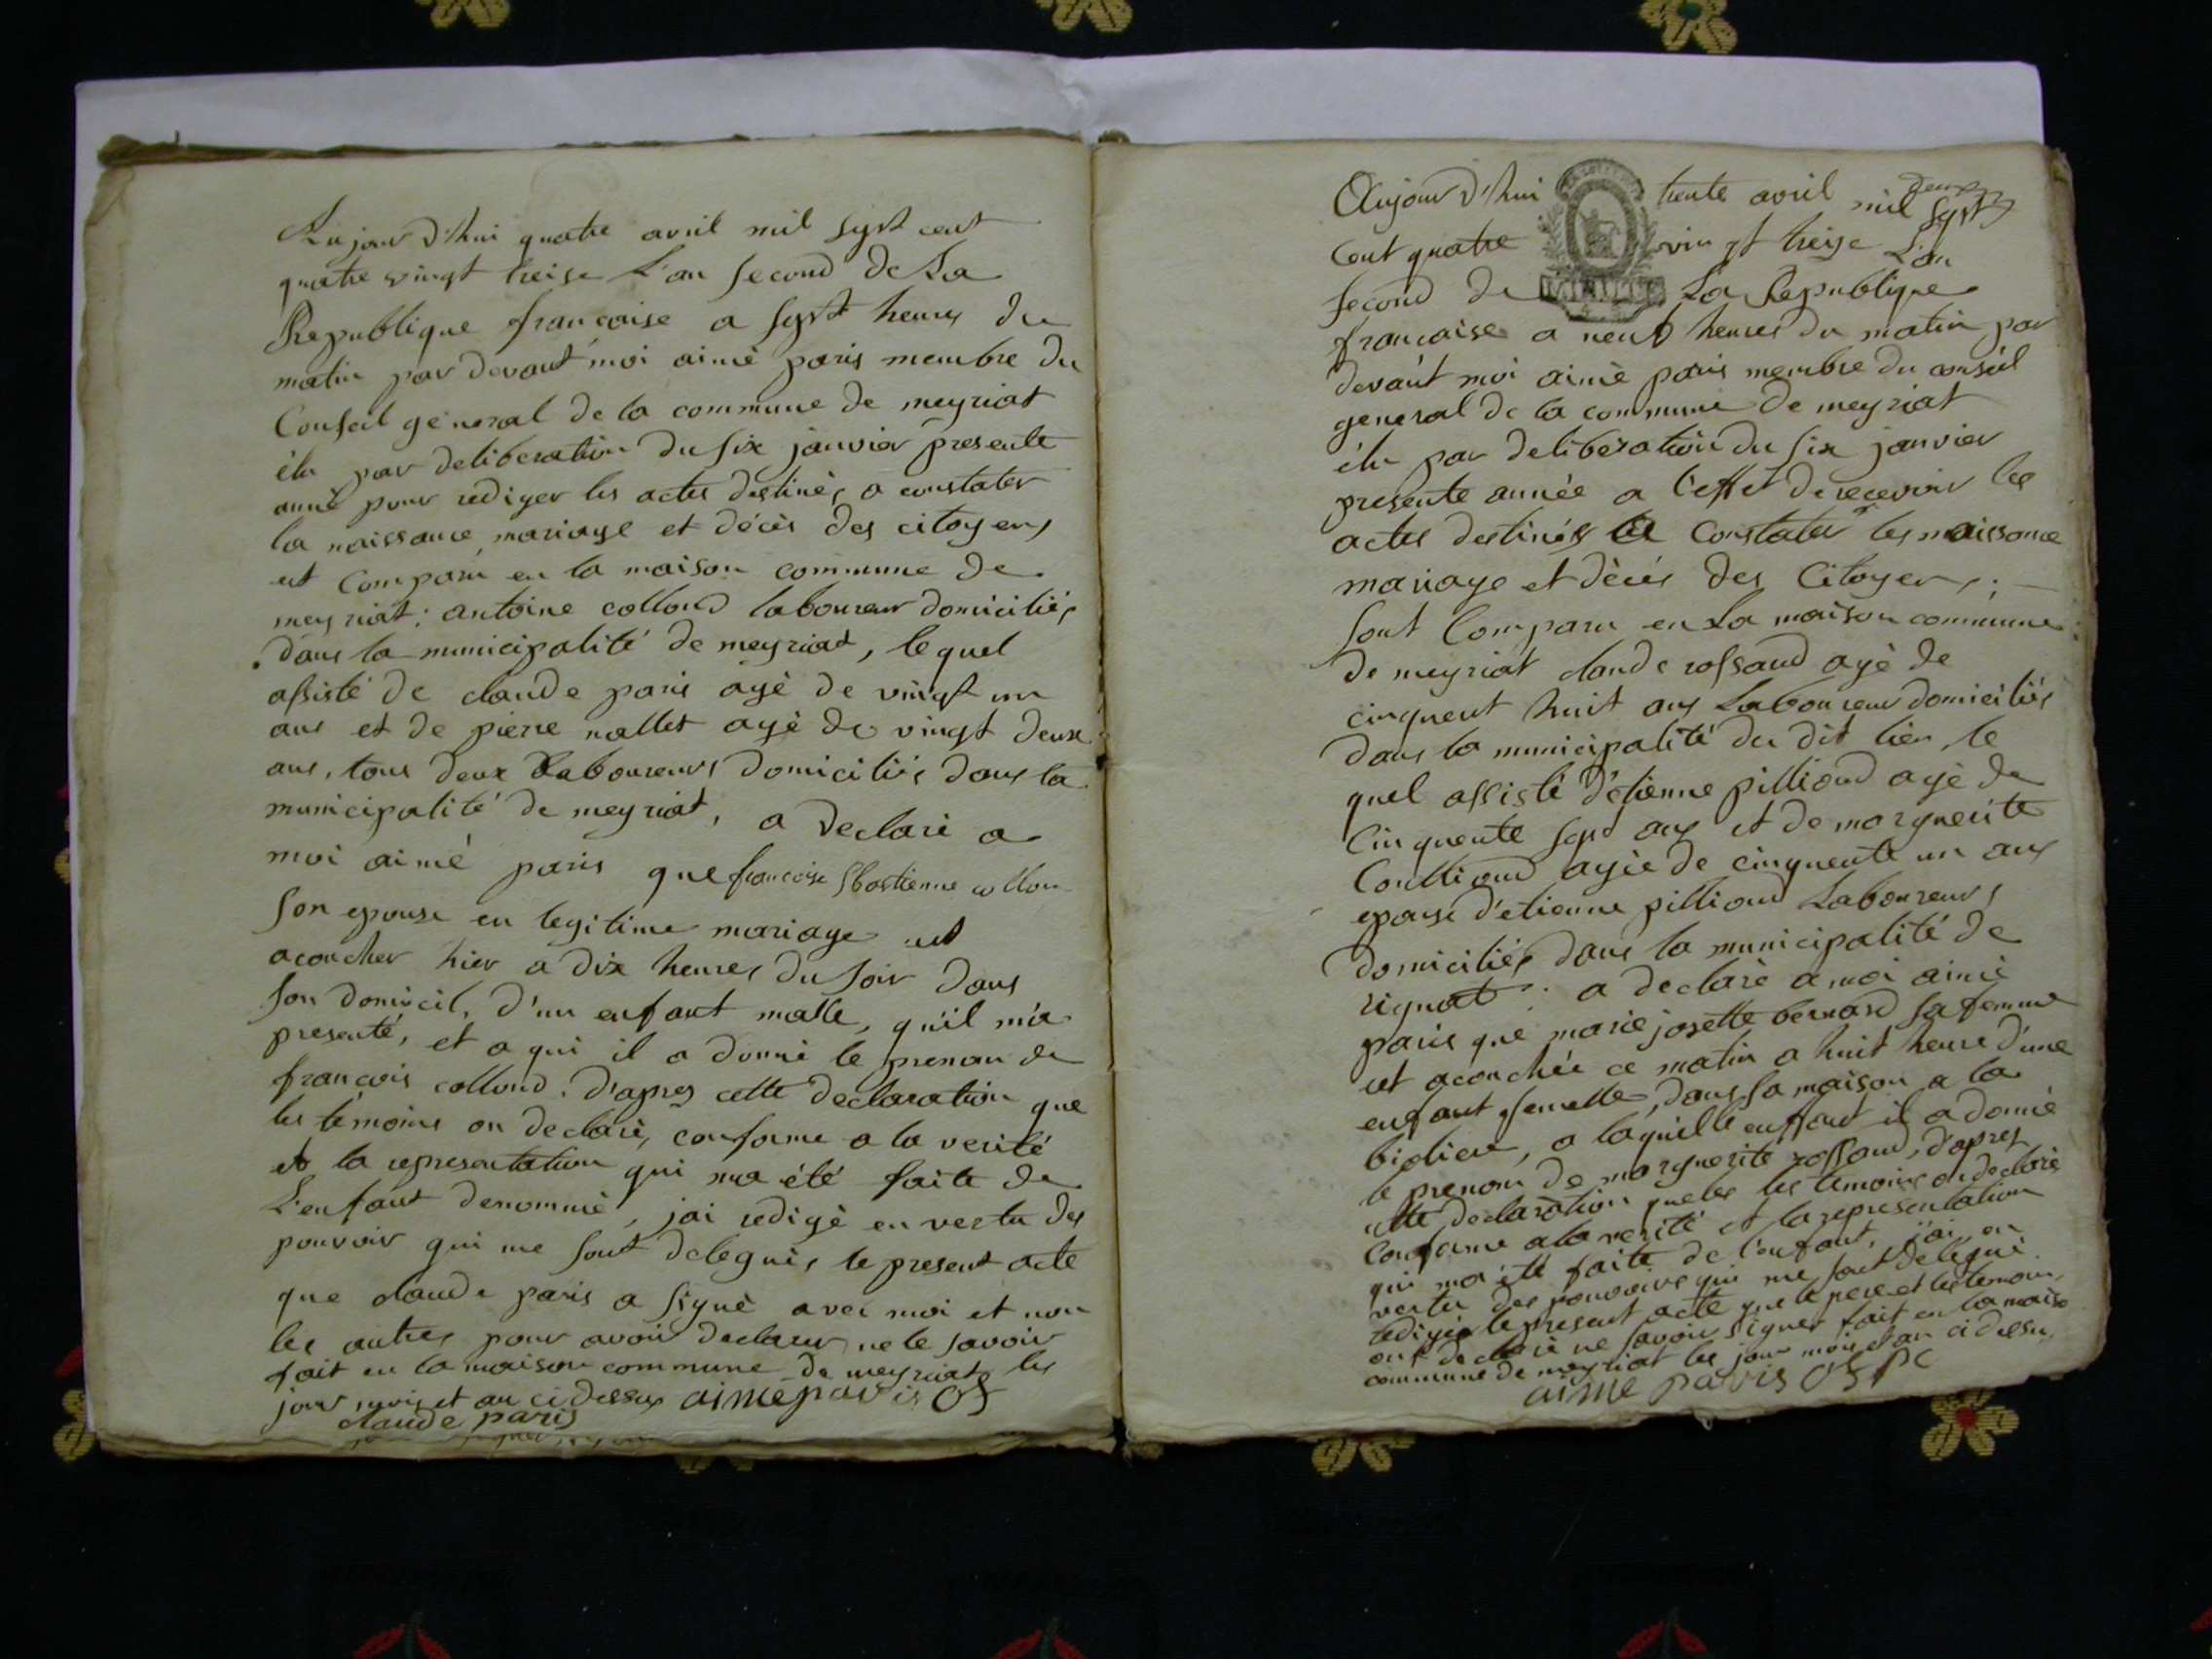 Aujour d'hui quatre avril mil sept cent
quatre vingt treise L'an second de La
Republique francaise a sept heures du
matin par devant moi aimé paris membre du
Conseil géneral de la commune de meyriat
élu par deliberation du six janvier presente
anné pour rediger les actes destinés a constater
la naissance, mariage et décès des citoyens
est Comparu en la maison commune de
meyriat: antoine collond laboureur domiciliés
dans la municipalité de meyriat, le quel
assisté de claude paris agé de vingt un
ans et de pierre nallet agé de vingt deux
ans, tous deux Laboureurs domiciliés dans la
municipalité de meyriat, a declaré a
moi aimé paris que francoise collon
son epouse en legitime mariage est
acoucher hier a dix heures du soir dans
son domicil, d'un enfant malle, qu'il m'a
presenté, et a qui il a donné le prenom de
francois collond. d'apres cette declaration que
les témoins on declaré, conforme a la verité
et la representation qui ma été faite de
L'enfant denommé, jai redigé en vertu des
pouvoir qui me sont delegués le present acte
que claude paris a signé avec moi et non
les autres pour avoir declarer ne le savoir
fait en la maison commune de meyriat les
jour mois et an ci dessus aime paris of
claude paris
Aujour d'hui trente avril mil sept
cent quatre vingt treise L'an
second de La Republique
MINUTE
francaise a neuf heures du matin par
devant moi aimé paris membre du conseil
general de la commune de meyriat
élu par deliberation du six janvier
presente année a l'effet de recevoir les
actes destinés a Constater les naissance
mariage et décés des Citoyens; —
sont Comparu en La maison commune
de meyriat claude rossand agé de
cinquent huit ans Laboureur domiciliés
dans la municipalité du dit lieu, le
quel assisté d'etienne pilliond agé de
Cinquente sept ans et de marguerite
Coulliond agée de cinquente un ans
epouse d'etienne pilliond Laboureurs
domiciliés dans la municipalité de
rignat: a declaré a moi aimé
paris que marie josette bernard sa femme
est acouchée ce matin a huit heure d'une
enfant femelle, dans sa maison a la
, a laquelle enffant il a donné
le prenom de marguerite rossand, d'apres
cette declaration que les temoins on declaré
Conforme a la verité et la representation
qui ma été faite de l'enfant, j'ai en
vertu des pouvoirs qui me sont delegué
redigér le present acte que le pere et les temoin
ont declaré ne savoir signer fait en la maison
commune de meyriat les jour mois et an ci dessu.
aime paris of pc